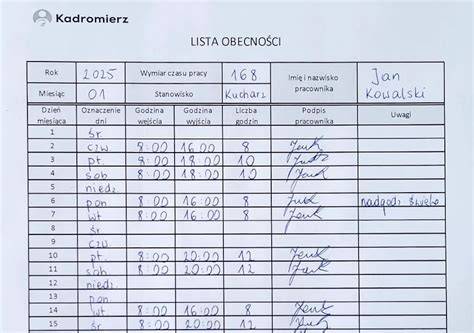 Kadromierz
LISTA OBECNOŚCI
Rok 2025 Wymiar czasu pracy 168 Imię i nazwisko pracownika Jan Kowalski
Miesiąc 01 Stanowisko Kucharz
Dzień miesiąca Oznaczenie dni Godzina wejścia Godzina wyjścia Liczba godzin Podpis pracownika Uwagi
1 śr.
2 czw 8:00 16:00 8
3 pt. 8:00 18:00 10
4 sob 8:00 18:00 10
5 niedz.
6 pon 8:00 16:00 8 nadgodz.
7 wt 8:00 16:00 8
8 śr
9 czw.
10 pt. 8:00 20:00 12
11 sob 8:00 20:00 12
12 niedz.
13 pon
14 wt 8:00 16:00 8
15 śr 8:00 20:00 12